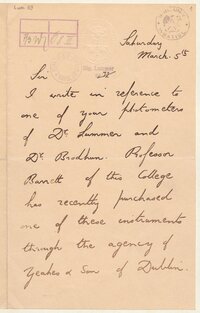 Saturday
March. 5th
Sir
I write in reference to
one of your photometers
of Dr Lummer and
Dr Brodhun. Professor
Barrett of this College
has recently purchased
one of these instruments
through the agency of
Yeates & Son of Dublin.